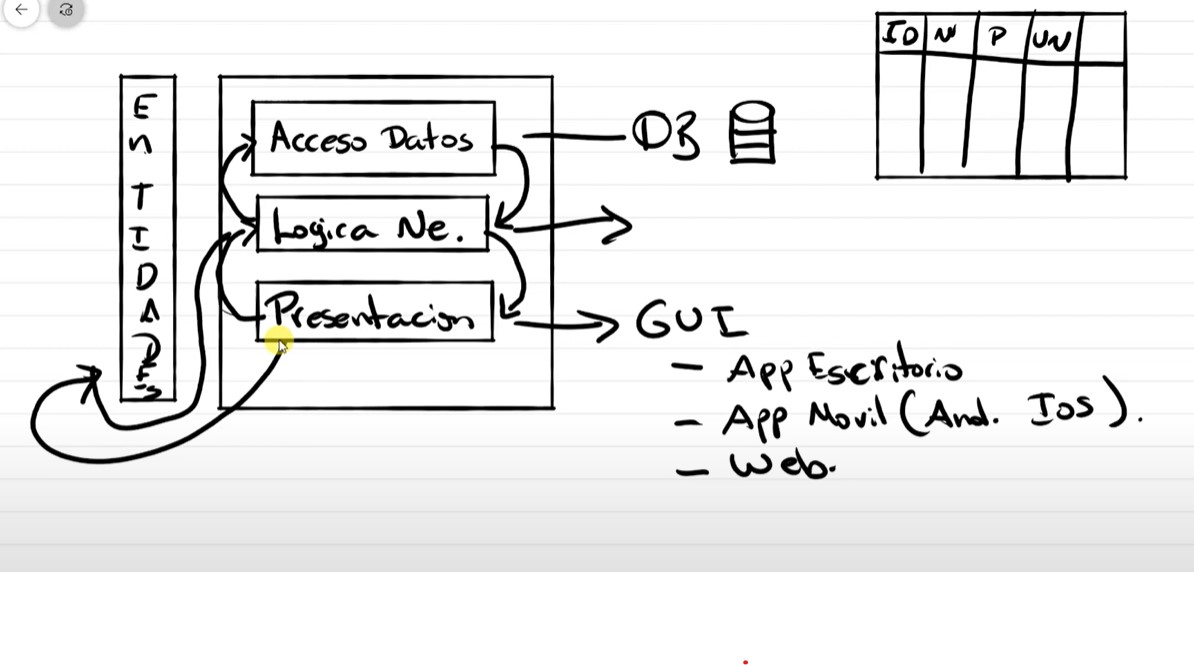 ENTIDADES
Acceso Datos
Logica Ne.
Presentacion
DB
GUI
- App Escritorio
- App Movil (And. Ios).
- Web.
ID N P UN